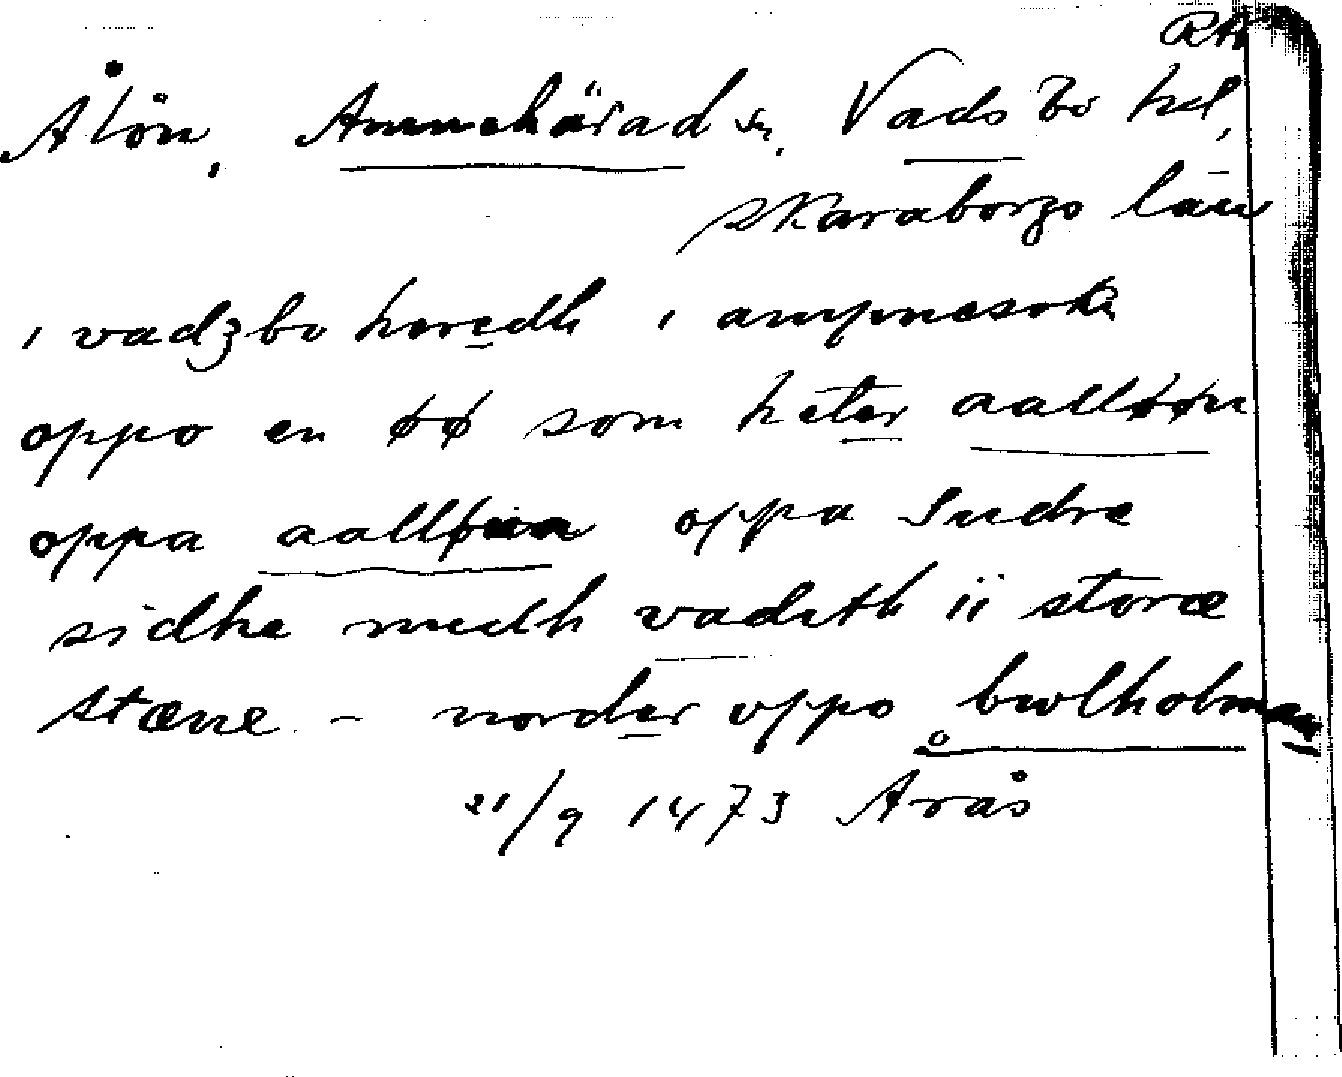 RA
Ålön, Amnehärad sn. Vadsbo hd,
Skaraborgs län
i vadzbo heredh i ampnesokn
oppo en øø som heter aalløøn
oppa aalløøn oppa sudre
sidhe medh vadeth ii storæ
stæne - norder oppo bwlholman
21/9 1473 Årås